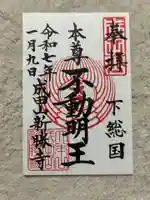 奉拝
下総国
本尊
不動明王
成田山新勝寺
令和七年
一月九日